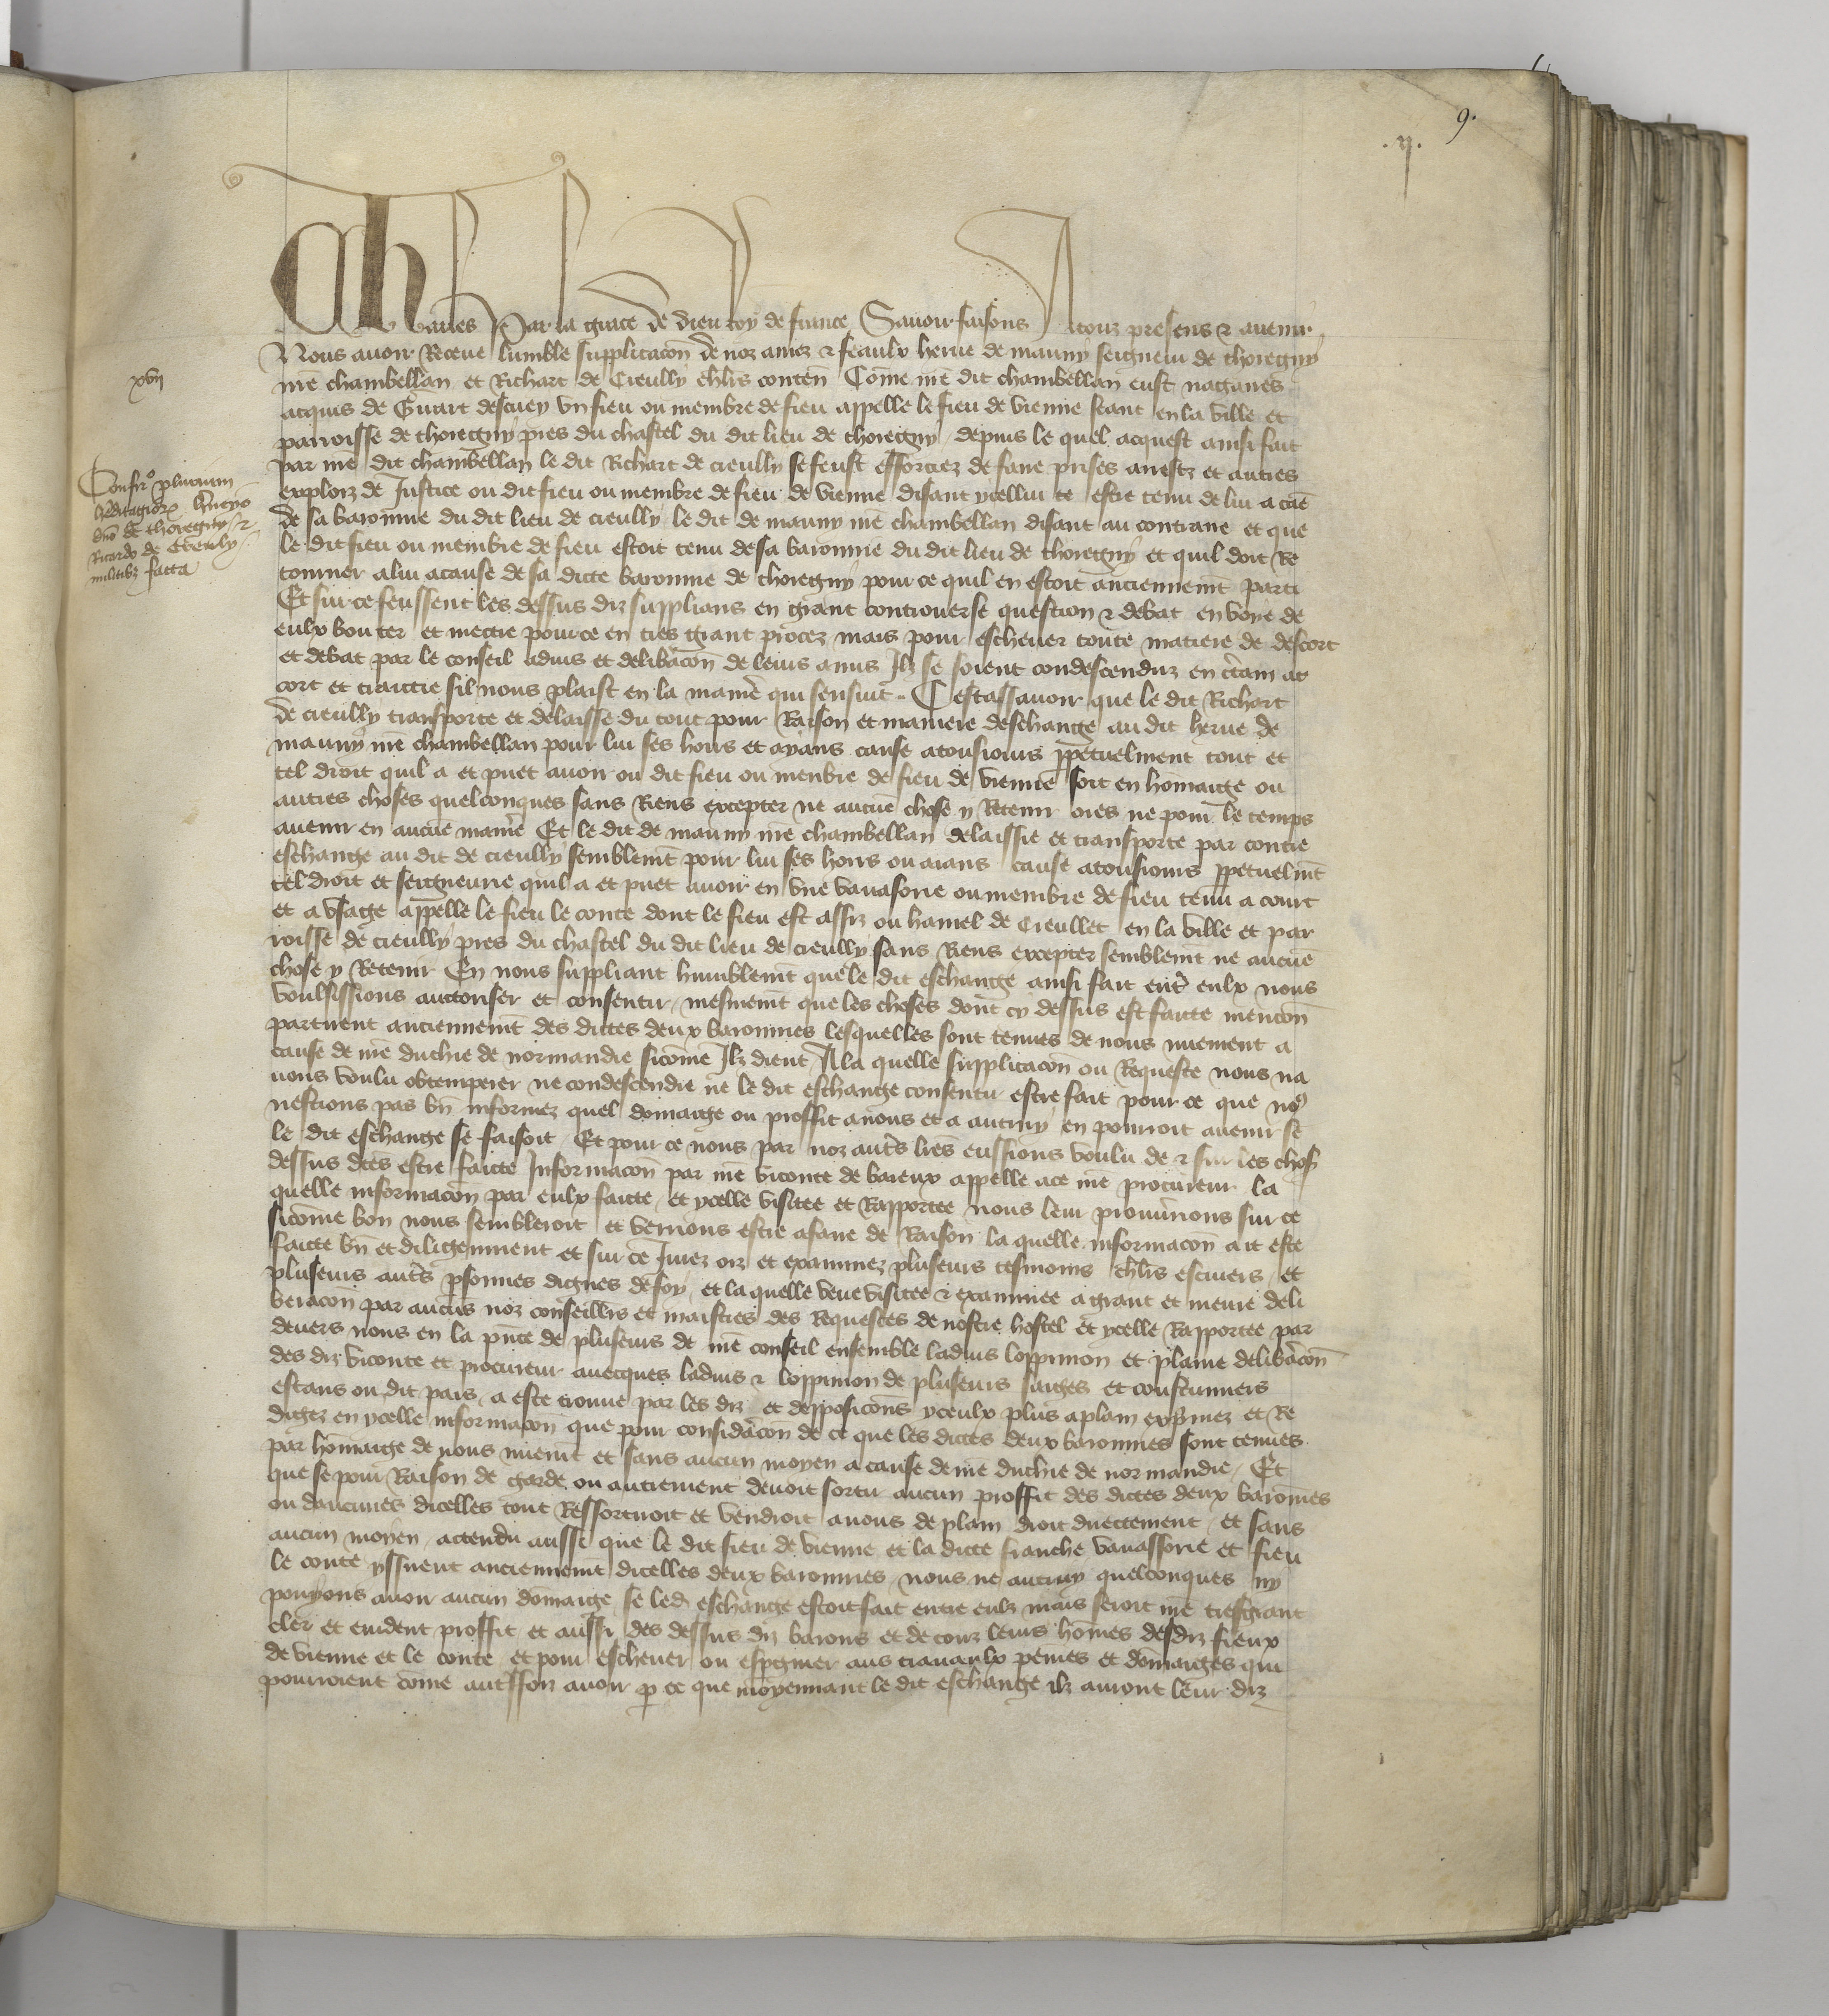 9.
.ıx.
Charles Par la grace de dieu roy de france Sauoir faisons A touz presens & auenir
Nous auoir Receue lumble supplicacōn de noz amez & feaulx herue de mauny seigneur de thoregny
xvii
nrē chambellan et Richart de Creully chlrs contenāt Cōme nrē dit chambellan eust nagaires
acquis de Guiart descuey vn fieu ou membre de fieu appelle le fieu de vienne seant en la ville et
parroisse de thoregny pres du chastel du dit lieu de thoregny / depuis le quel acquest ainsi fait
par nrē dit chambellan le dit Richart de creully se feust efforciez de faire prises arrestz et autres
Confirᵒ plurium
hditagiorꝝ hueyo
dnō de thoregny &
Ricardo de Creuly
militibꝫ facta
exploiz de Justice ou dit fieu ou membre de fieu de vienne disant ycellui estre tenu de lui a cāe
de sa baronnie du dit lieu de creully le dit de mauny nrē chambellan disant au contraire et que
le dit fieu ou membre de fieu estoit tenu de sa baronnie du dit lieu de thoregny et quil doit Re
tourner a lui a cause de sa dicte baronnie de thoregny pour ce quil en estoit anciennemt parti
Et sur ce feussent les dessus diz supplians en grant controuerse question & debat en voye de
eulx bouter et mectre pour ce en tres grant procez mais pour escheuer toute matiere de descort
et debat par le conseil aduis et delibācōn de leurs amis Ilz se soient condescenduz en ctain ac
cort et traictie sil nous plaist en la manē qui sensuit. Cestassauoir que le dit Richart
de creully transporte et delaisse du tout pour Raison et maniere deschange au dit herue de
mauny nrē chambellan pour lui ses hoirs et ayans cause a tousiours ppetuelment tout et
tel droit quil a et puet auoir ou dit fieu ou menbre de fieu de vienne soit en hōmaige ou
autres choses quelconques sans Riens excepter ne aucūe chose y Retenir ores ne pour le temps
auenir en aucūe manē Et le dit de mauny nrē chambellan delaisse et transporte par contre
eschange au dit de creully semblemt pour lui ses hoirs ou aians cause a tousiours ppetuelmt
tel droit et seigneurie quil a et puet auoir en vne vauasorie ou membre de fieu tenu a court
et a vsage appelle le fieu le conte dont le fieu est assiz ou hamel de Creullet en la ville et par
roisse de creully pres du chastel du dit lieu de creully sans Riens excepter semblemt ne aucūe
chose y Retenir En nous suppliant humblemt que le dit eschange ainsi fait entr̄ eulx nous
voulsissions auctoriser et consentir / mesmemt que les choses dont cy dessus est faicte mencōn
partirent anciennemt des dictes deux baronnies lesquelles sont tenues de nous nuement a
cause de nrē duchie de normandie sicōme Ilz dient A la quelle supplicacōn ou Requeste nous na
uons voulu obtemperer ne condescendre ne le dit eschange consentir estre fait pour ce que no9
nestions pas bn̄ informez quel domaige ou proffit a nous et a autruy en pourroit auenir se
le dit eschange se faisoit Et pour ce nous par noz autr̄s lrēs eussions voulu de & sur les chos̄
dessus dctēs estre faicte Informacōn par nrē viconte de baieux appelle a ce nrē procureur la
quelle informacōn par eulx faicte / et ycelle visitee et Rapportee nous leur prouuerrions sur ce
sicōme bon nous sembleroit et verrions estre a faire de Raison la quelle informacōn ait este
faicte bn̄ et diligemment et sur ce Jurez oiz et examinez pluseurs tesmoins chlrs escuiers et
pluseurs autr̄s psonnes dignes de foy / et la quelle veue visitee & examinee a grant et meure deli
beracōn par aucūs noz conseillrs et maistres des Requestes de nostre hostel et ycelle Rapportee par
deuers nous en la pn̄te de pluseurs de nrē conseil ensemble laduis loppinion et plaine delibācōn
des diz viconte et procureur auecques laduis & loppinion de pluseurs saiges et coustumiers
estans ou dit pais / a este trouue par les diz et depposicōns yceulx plus a plain exprimez et Re
digez en ycelle informacōn que pour considācōn de ce que les dictes deux baronnies sont tenues
par hōmaige de nous nuemt et sans aucun moyen a cause de nrē duchie de normandie / Et
que se pour Raison de garde ou autrement deuoit sortir aucun proffit des dictes deux baronnies
ou daucunes dicelles tout Ressortiroit et vendroit a nous de plain droit directement / et sans
aucun moyen / actendu aussi que le dit fieu de vienne et la dicte franche vauassorie et fieu
le conte yssirent anciennemt dicelles deux baronnies / nous ne autruy quelconques ny
pouyons auoir aucun domaige se led eschange estoit fait entre eulz mais seroit nrē tresgrant
cler et euident proffit et aussi des dessus diz barons et de touz leurs hōmes desdiz fieux
de vienne et le conte et pour escheuer ou espgnier aus trauaulx peines et domaiges qui
pourroient cōme autsson auoir p ce que moyennant le dit eschange ilz auront leur diz